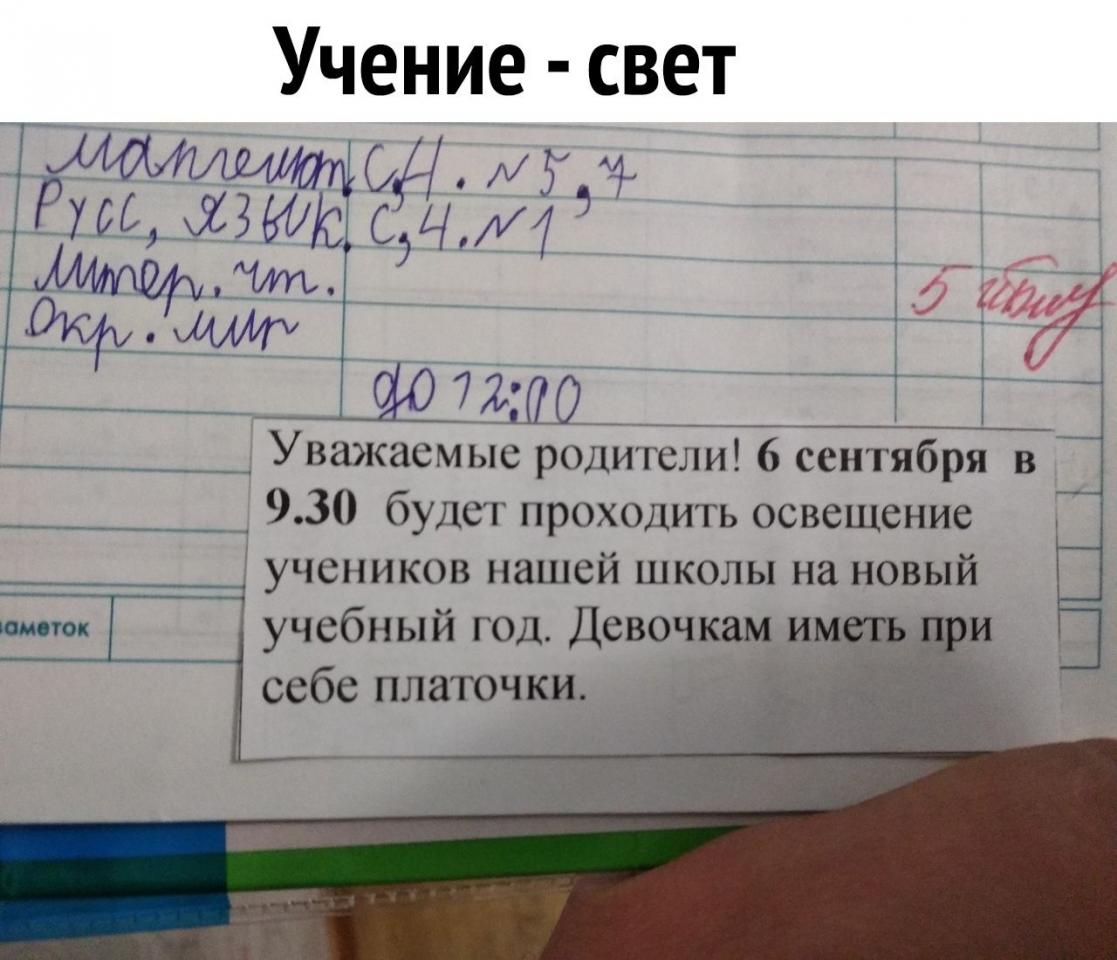 Учение - свет
математ. с, 4. №5, 7
Русс, язык. с, 4. №1
Литер. чт.
5
Окр. мир
до 12:00
Уважаемые родители! 6 сентября в
9.30 будет проходить освещение
учеников нашей школы на новый
учебный год. Девочкам иметь при
себе платочки.
заметок